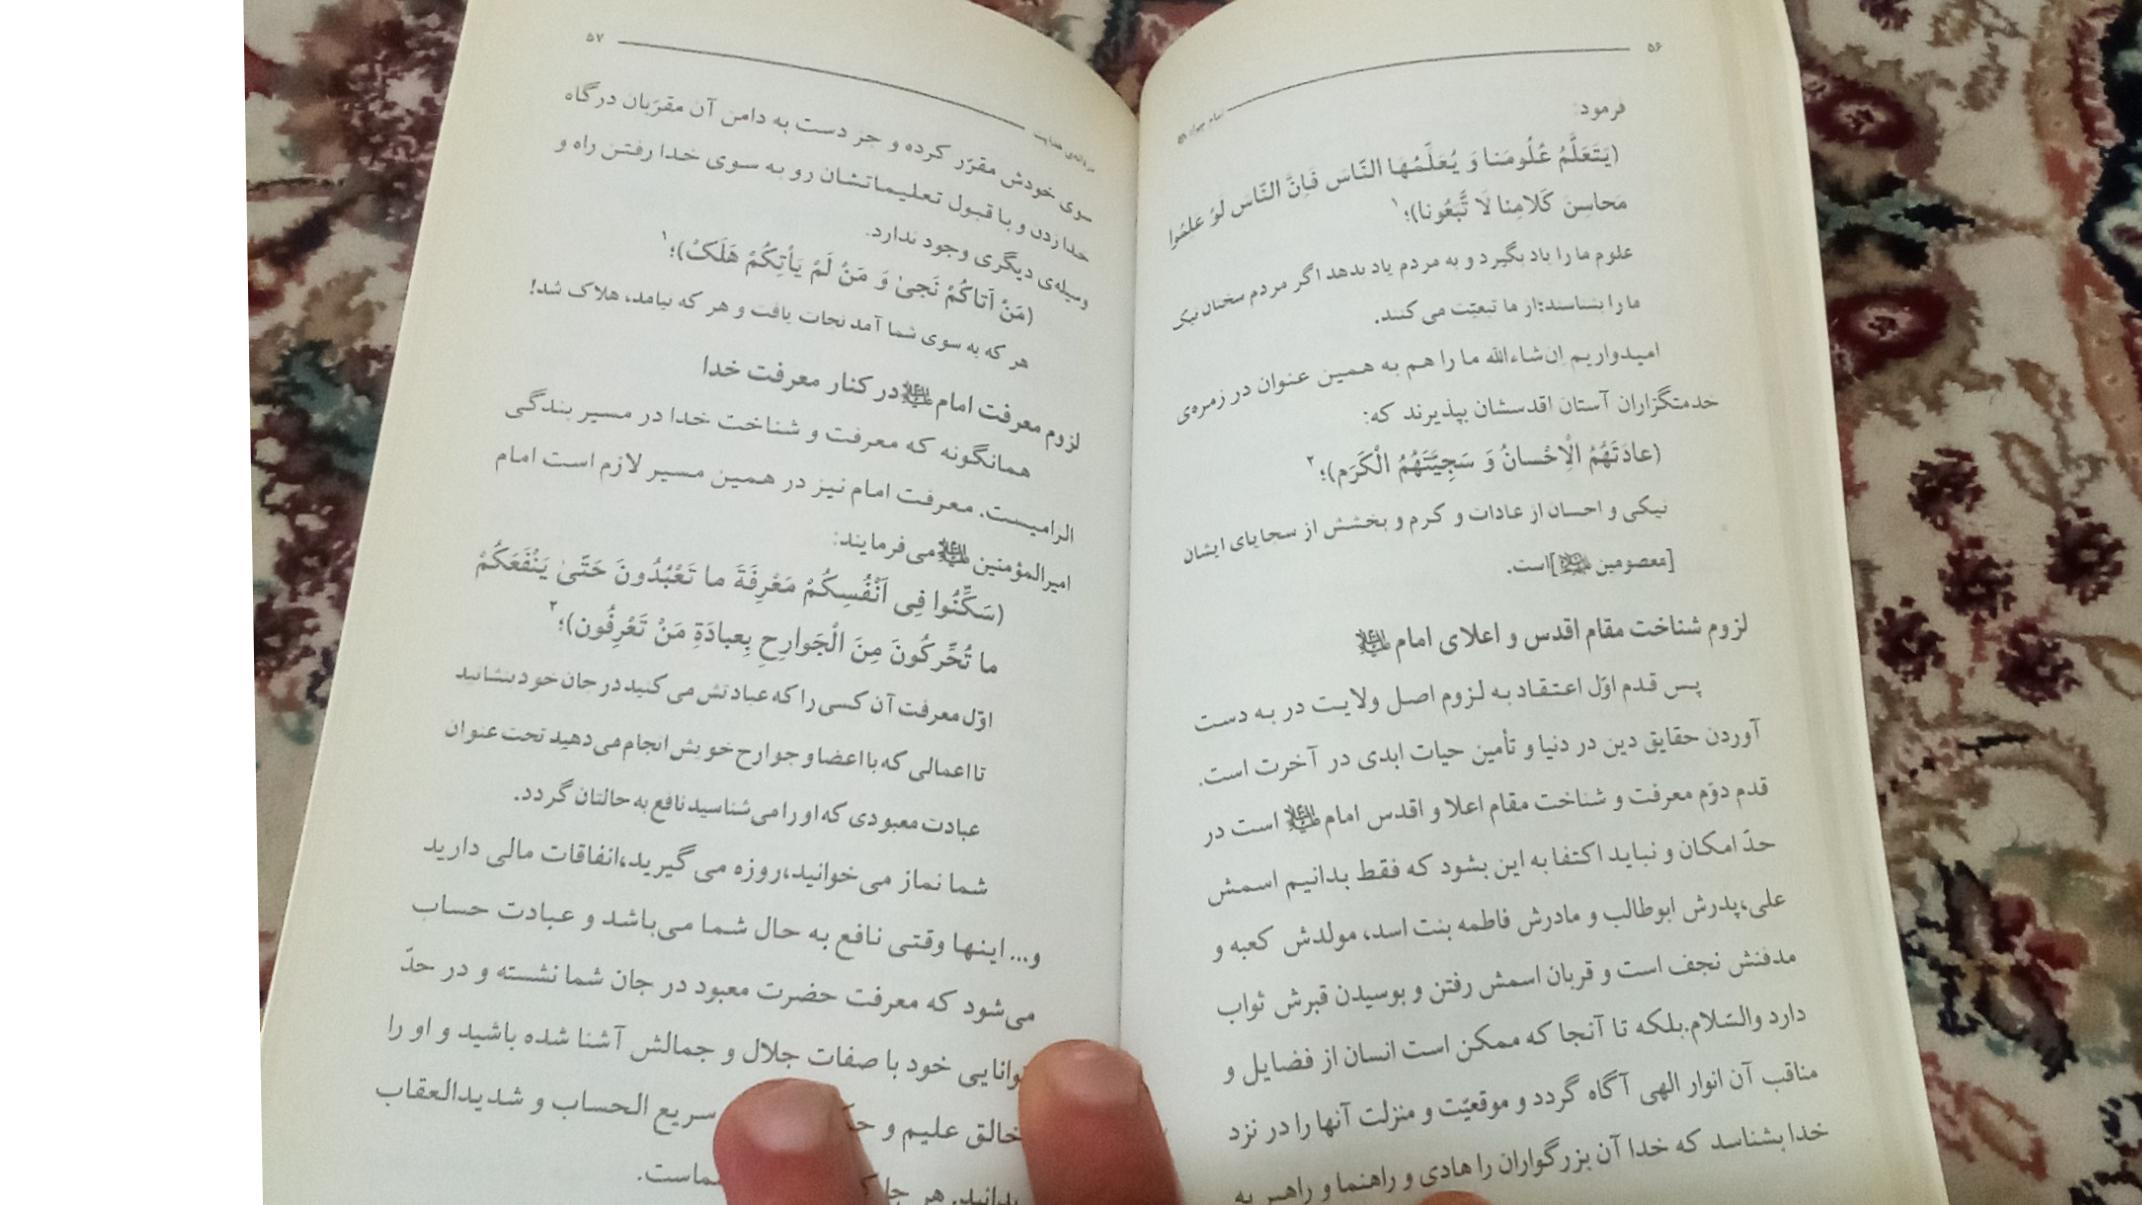 ۵۶
امام جواد
فرمود:
(یَتَعَلَّمُ عُلُومَنا وَ یُعَلِّمُهَا النّاسَ فَاِنَّ النّاسَ لَوْ عَلِمُوا
مَحاسِنَ کَلامِنا لَا تَّبَعُونا)؛۱
علوم ما را یاد بگیرد و به مردم یاد بدهد اگر مردم سخنان نیک
ما را بشناسند؛از ما تبعیّت می کنند.
امیدواریم ان‌شاءالله ما را هم به همین عنوان در زمره‌ی
خدمتگزاران آستان اقدسشان بپذیرند که:
(عادَتَهُمُ الْاِحْسانُ وَ سَجِیَّتَهُمُ الْکَرَم)؛۲
نیکی و احسان از عادات و کرم و بخشش از سجایای ایشان
[معصومین علیهم السلام]است.
لزوم شناخت مقام اقدس و اعلای امام علیه السلام
پس قدم اوّل اعتقاد به لزوم اصل ولایت در به دست
آوردن حقایق دین در دنیا و تأمین حیات ابدی در آخرت است.
قدم دوّم معرفت و شناخت مقام اعلا و اقدس امام علیه السلام است در
حدّ امکان و نباید اکتفا به این بشود که فقط بدانیم اسمش
علی،پدرش ابوطالب و مادرش فاطمه بنت اسد، مولدش کعبه و
مدفنش نجف است و قربان اسمش رفتن و بوسیدن قبرش ثواب
دارد والسّلام.بلکه تا آنجا که ممکن است انسان از فضایل و
مناقب آن انوار الهی آگاه گردد و موقعیّت و منزلت آنها را در نزد
خدا بشناسد که خدا آن بزرگواران را هادی و راهنما و راهبر به
۵۷
هدایت
سوی خودش مقرّر کرده و جز دست به دامن آن مقرّبان درگاه
خدا زدن و با قبول تعلیماتشان رو به سوی خدا رفتن راه و
وسیله‌ی دیگری وجود ندارد.
(مَنْ اَتاکُمْ نَجیٰ وَ مَنْ لَمْ یَأتِکُمْ هَلَکْ)؛۱
هر که به سوی شما آمد نجات یافت و هر که نیامد، هلاک شد!
لزوم معرفت امام علیه السلام در کنار معرفت خدا
همانگونه که معرفت و شناخت خدا در مسیر بندگی
الزامیست. معرفت امام نیز در همین مسیر لازم است امام
امیرالمؤمنین علیه السلام می‌فرمایند:
(سَکِّنُوا فِی اَنْفُسِکُمْ مَعْرِفَةَ ما تَعْبُدُونَ حَتّیٰ یَنْفَعَکُمْ
ما تُحَّرِکُونَ مِنَ الْجَوارِحِ بِعِبادَةِ مَنْ تَعْرِفُون)؛۲
اوّل معرفت آن کسی را که عبادتش می کنید در جان خود بنشانید
تا اعمالی که با اعضا و جوارح خویش انجام می‌دهید تحت عنوان
عبادت معبودی که او را می‌شناسید نافع به حالتان گردد.
شما نماز می‌خوانید،روزه می گیرید،انفاقات مالی دارید
و... اینها وقتی نافع به حال شما می‌باشد و عبادت حساب
می‌شود که معرفت حضرت معبود در جان شما نشسته و در حدّ
توانایی خود با صفات جلال و جمالش آشنا شده باشید و او را
خالق علیم و سریع الحساب و شدیدالعقاب
بدانید. هر جا